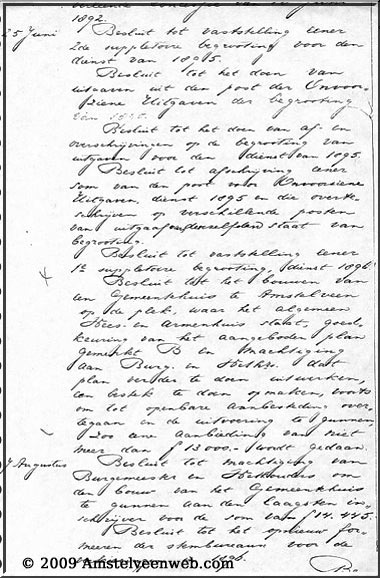 1892.
25 Juni Besluit tot vaststelling eener
2de suppletoire begrooting voor den
dienst van 1895.
Besluit tot het doen van
uitgaven uit den post der Onvoor-
ziene Uitgaven der begrooting
van 1895.
Besluit tot het doen van af- en
overschrijvingen op de begrooting van
uitgaven voor den dienst van 1895.
Besluit tot afschrijving eener
som van den post voor Onvoorziene
Uitgaven, dienst 1895 en die overte-
schrijven op verschillende posten
van uitgaaf denzelfden staat van
begrooting.
Besluit tot vaststelling eener
1e suppletoire begrooting, dienst 1896.
Besluit tot het bouwen van
een Gemeenthuis te Amstelveen
op de plek, waar het algemeen
Wees- en Armenhuis staat, goed-
keuring van het aangeboden plan
gemerkt B en machtiging
aan Burg. en Weths. dat
plan verder te doen uitwerken,
een bestek te doen opmaken, voorts
om tot openbare aanbesteding over
tegaan en de uitvoering te gunnen
zoo eene aanbieding van niet
meer dan f 13000.- wordt gedaan.
7 Augustus Besluit tot machtiging van
Burgemeester en Wethouders om
den bouw van het Gemeenthuis
te gunnen aan den laagsten in-
schrijver voor de som van f 14.445.-
Besluit tot het opnieuw for-
meeren der stembureaux voor de
© 2009 Amstelveenweb.com